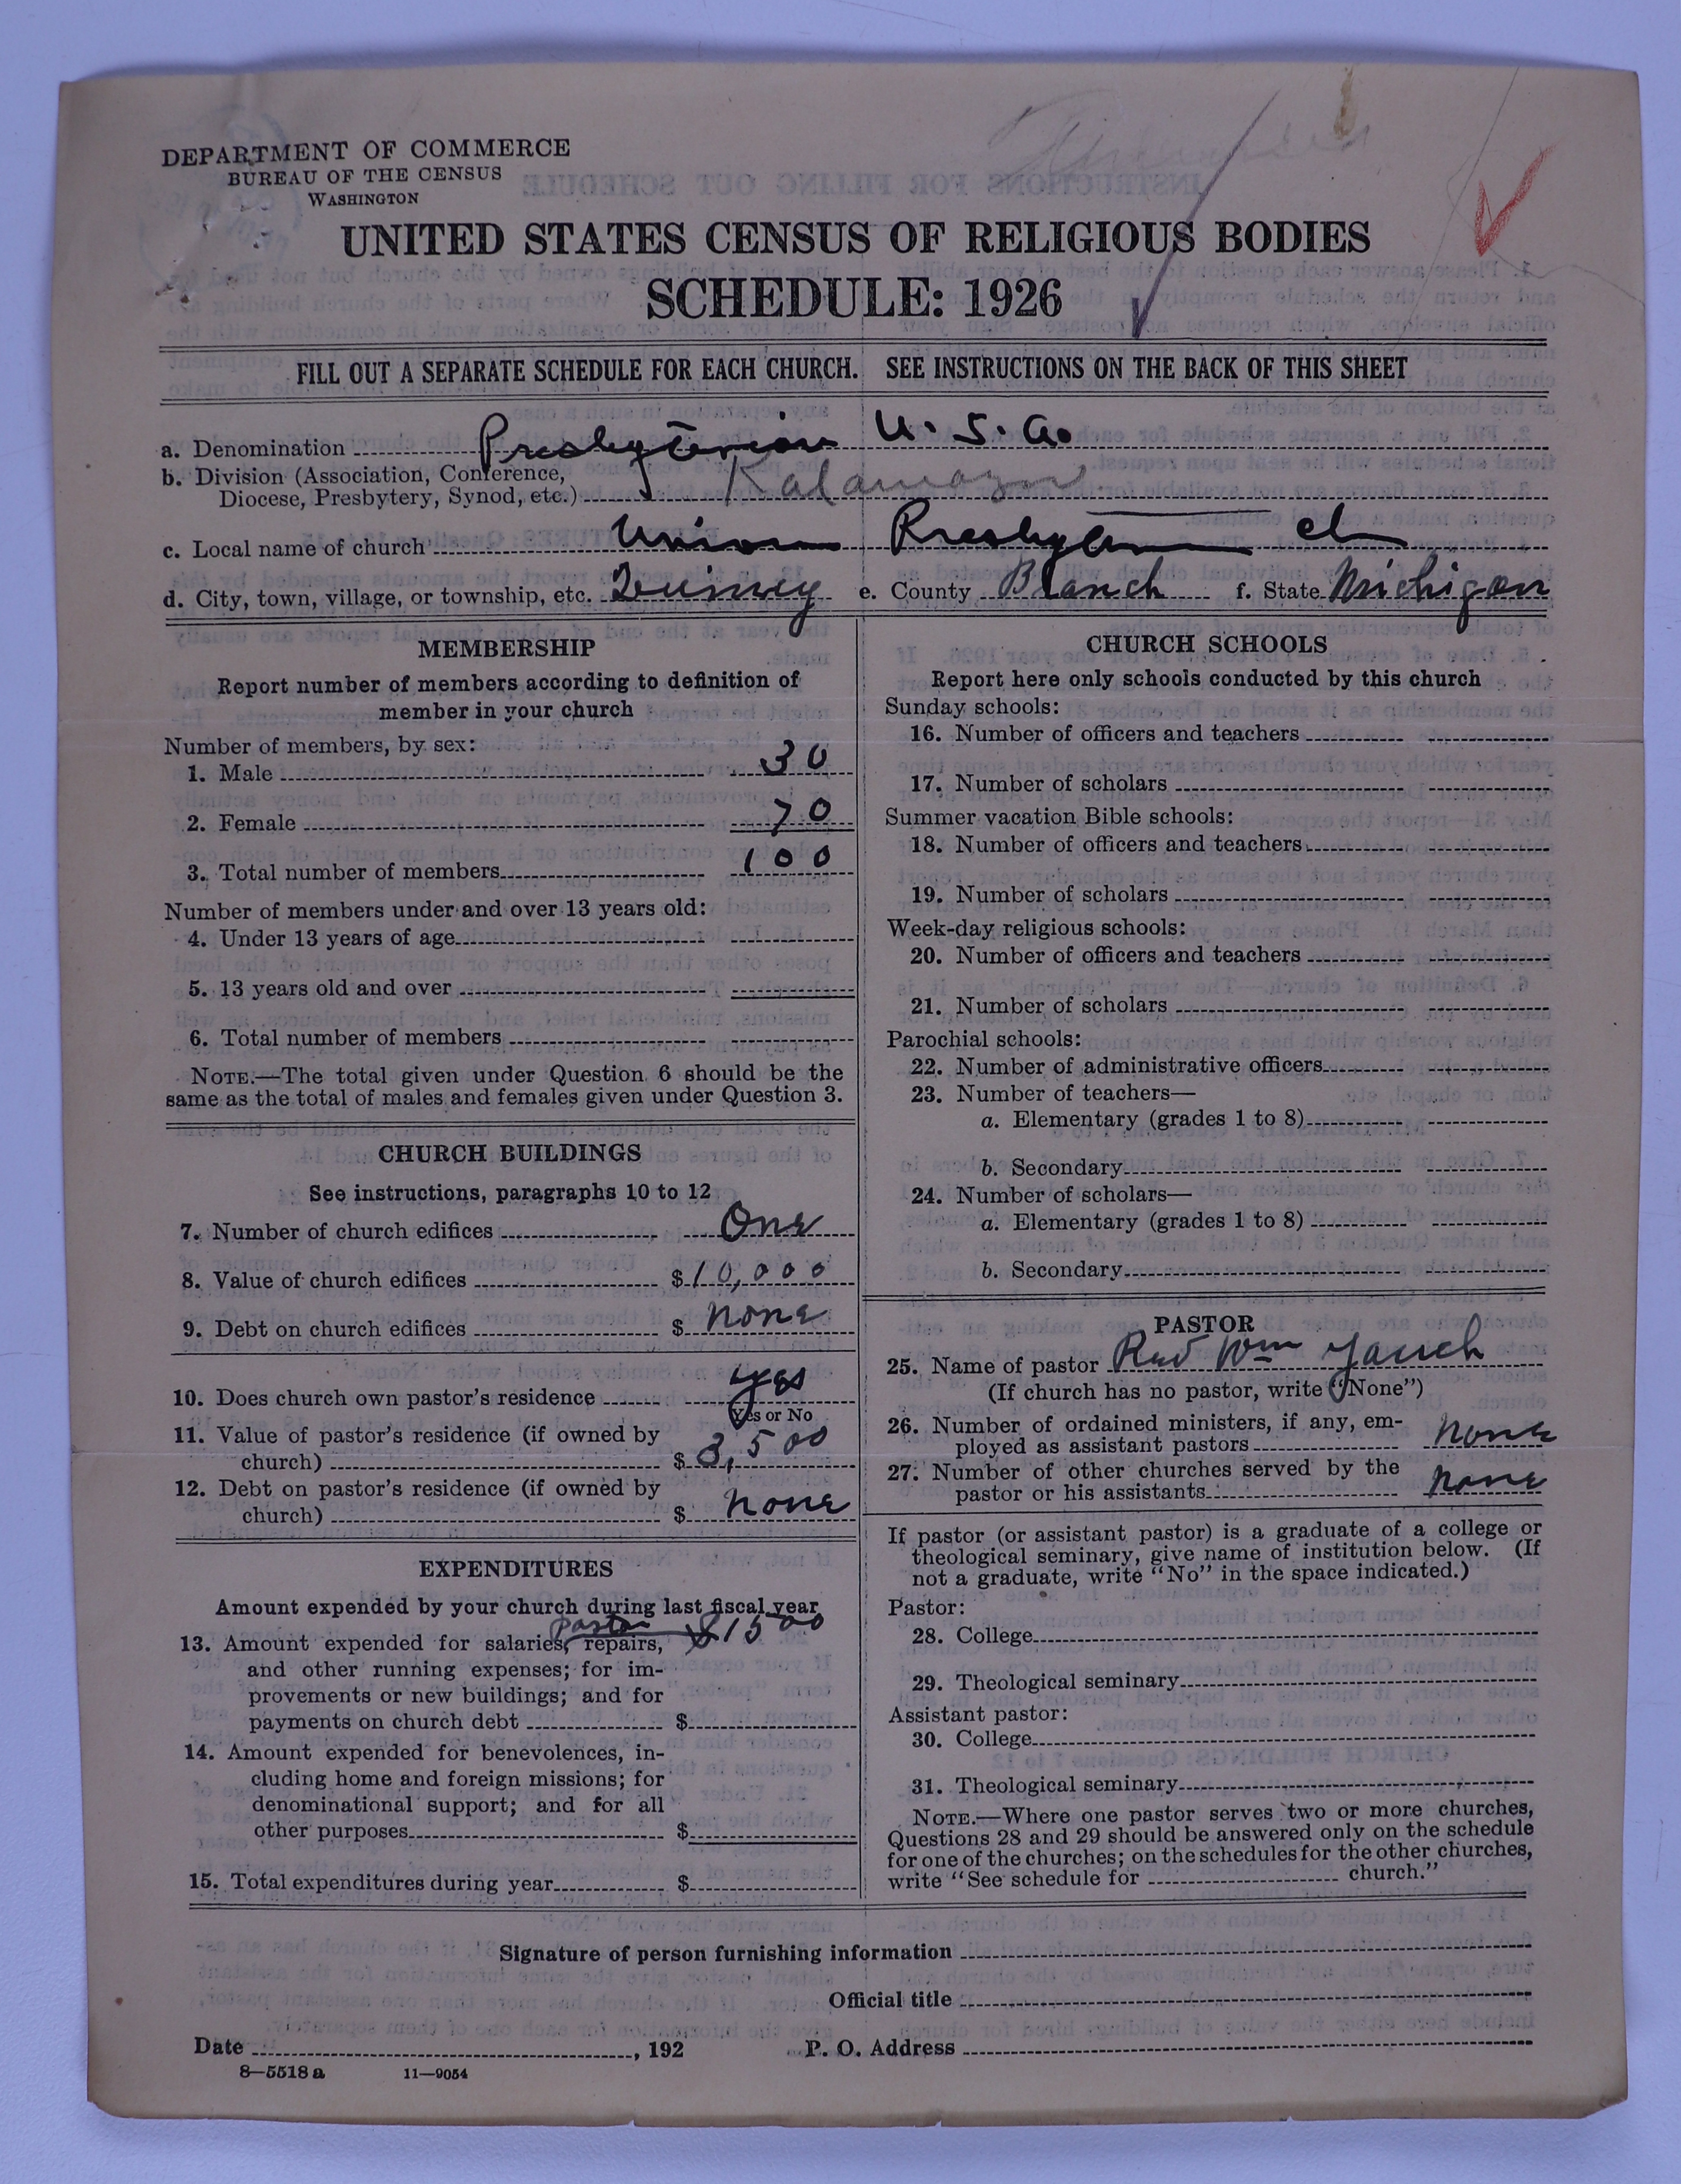 DEPARTMENT OF COMMERCE
BUREAU OF THE CENSUS
WASHINGTON
UNITED STATES CENSUS OF RELIGIOUS BODIES
SCHEDULE: 1926
FILL OUT A SEPARATE SCHEDULE FOR EACH CHURCH. SEE INSTRUCTIONS ON THE BACK OF THIS SHEET
a. Denomination Presbyterian U. S. A.
b. Division (Association, Conference,
Diocese, Presbytery, Synod, etc.) Kalamazoo
c. Local name of church Union Presbyterian ch
d. City, town, village, or township, etc. Quincy e. County Branch f. State Michigan
MEMBERSHIP
Report number of members according to definition of
member in your church
Number of members, by sex:
1. Male 30
2. Female 70
3. Total number of members 100
Number of members under and over 13 years old:
4. Under 13 years of age
5. 13 years old and over
6. Total number of members
NOTE.—The total given under Question 6 should be the
same as the total of males and females given under Question 3.
CHURCH BUILDINGS
See instructions, paragraphs 10 to 12
7. Number of church edifices One
8. Value of church edifices $10,000
9. Debt on church edifices $ none
10. Does church own pastor's residence yes
Yes or No
11. Value of pastor's residence (if owned by
church) $3,500
12. Debt on pastor's residence (if owned by
church) $ none
EXPENDITURES
Amount expended by your church during last fiscal year
pastor $1500
13. Amount expended for salaries, repairs,
and other running expenses; for im-
provements or new buildings; and for
payments on church debt $
14. Amount expended for benevolences, in-
cluding home and foreign missions; for
denominational support; and for all
other purposes $
15. Total expenditures during year $
CHURCH SCHOOLS
Report here only schools conducted by this church
Sunday schools:
16. Number of officers and teachers
17. Number of scholars
Summer vacation Bible schools:
18. Number of officers and teachers
19. Number of scholars
Week-day religious schools:
20. Number of officers and teachers
21. Number of scholars
Parochial schools:
22. Number of administrative officers
23. Number of teachers—
a. Elementary (grades 1 to 8)
b. Secondary
24. Number of scholars—
a. Elementary (grades 1 to 8)
b. Secondary
PASTOR
25. Name of pastor Rev Wm Yauch
(If church has no pastor, write "None")
26. Number of ordained ministers, if any, em-
ployed as assistant pastors none
27. Number of other churches served by the
pastor or his assistants none
If pastor (or assistant pastor) is a graduate of a college or
theological seminary, give name of institution below. (If
not a graduate, write "No" in the space indicated.)
Pastor:
28. College
29. Theological seminary
Assistant pastor:
30. College
31. Theological seminary
NOTE.—Where one pastor serves two or more churches,
Questions 28 and 29 should be answered only on the schedule
for one of the churches; on the schedules for the other churches,
write "See schedule for church."
Signature of person furnishing information
Official title
Date , 192 P. O. Address
8—5518 a 11—9054